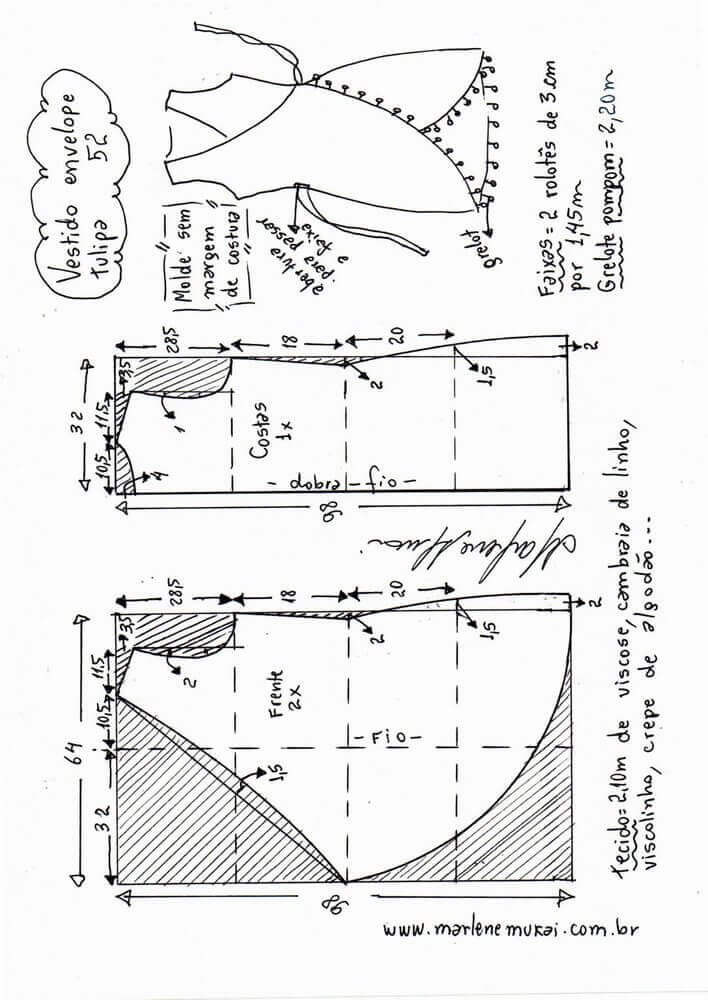 Vestido envelope
tulipa 52
"Molde sem"
margem
"de costura"
abertura
para passar
a faixa
grelot
Faixas = 2 rolotês de 3cm
por 1,45m
Grelote pompom = 2,20m
28,5
18
20
32
11,5
10,5
3,5
1
4
2
1,5
2
Costas
1x
- dobra - fio -
98
28,5
18
20
64
11,5
10,5
32
3,5
2
2
1,5
2
Frente
2x
- FIO -
1,5
98
Tecido = 2,10m de viscose, cambraia de linho,
viscolinho, crepe de algodão...
www.marlenemukai.com.br